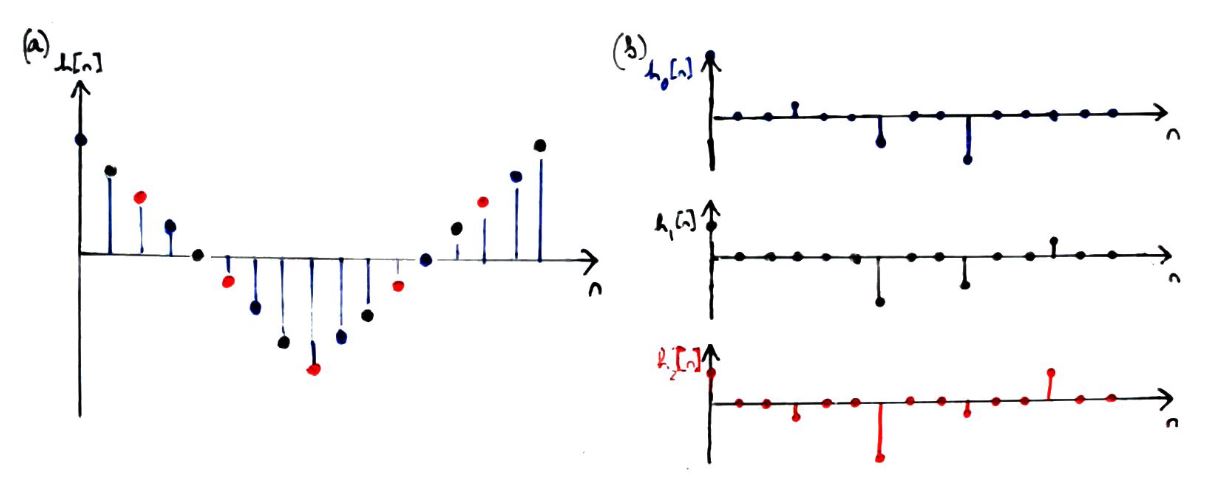 (a)
h[n]
n
(b)
h₀[n]
n
h₁[n]
n
h₂[n]
n